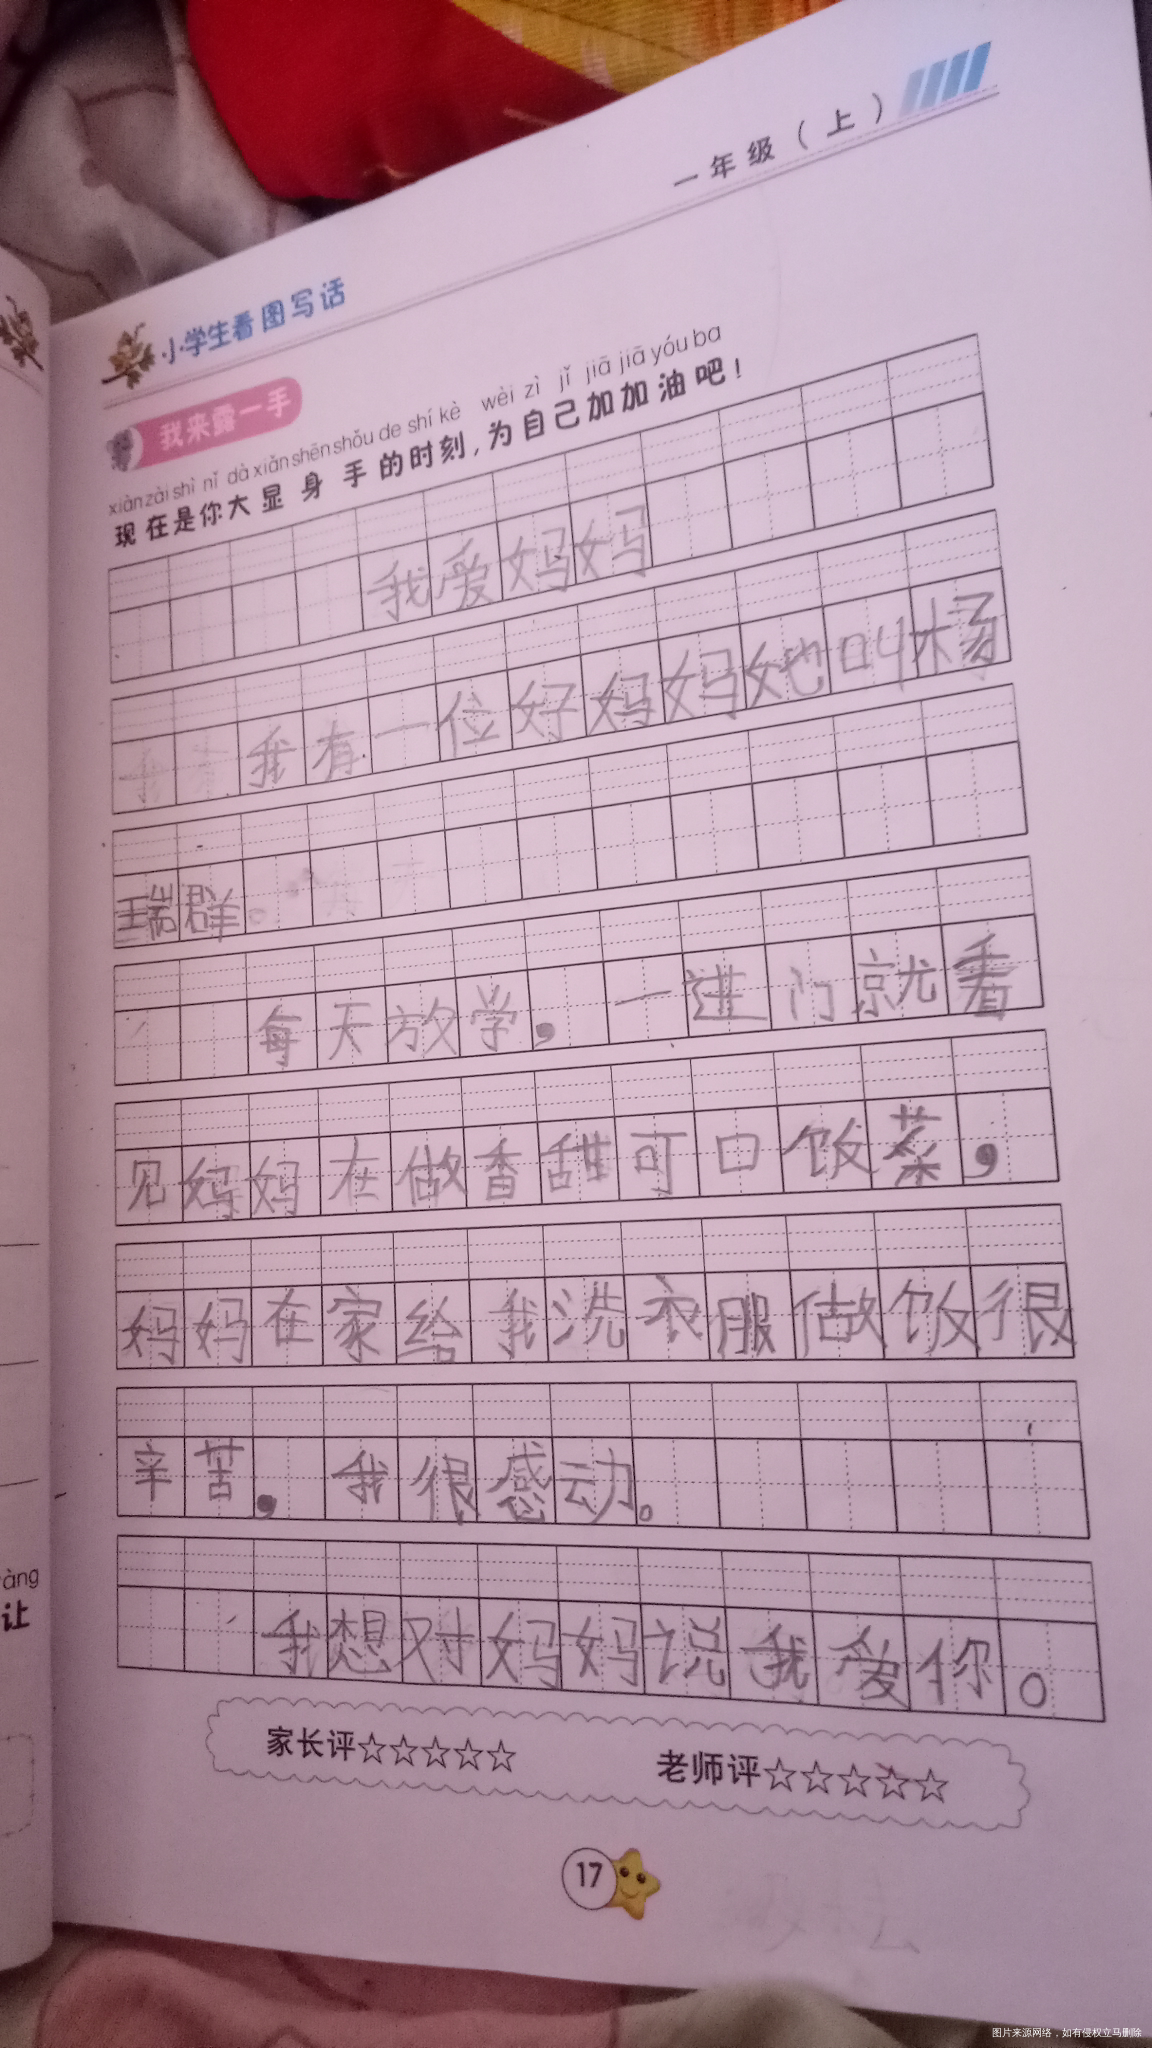 一年级（上）
小学生看图写话
我来露一手
xiàn zài shì nǐ dà xiǎn shēn shǒu de shí kè wèi zì jǐ jiā jiā yóu ba
现在是你大显身手的时刻，为自己加加油吧！
我爱妈妈
我有一位好妈妈她叫杨
瑞群。
每天放学，一进门就看
见妈妈在做香甜可口饭菜，
妈妈在家给我洗衣服做饭很
辛苦，我很感动。
我想对妈妈说我爱你。
家长评☆☆☆☆☆ 老师评☆☆☆☆☆
17
àng
让
图片来源网络，如有侵权立马删除